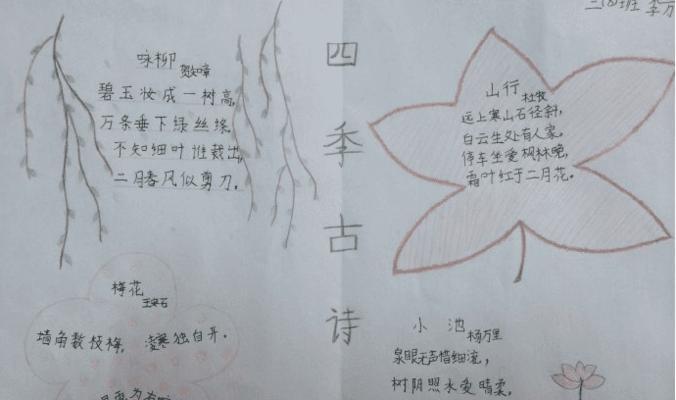 三(6)班 李万
四季古诗
咏柳
贺知章
碧玉妆成一树高,
万条垂下绿丝绦。
不知细叶谁裁出,
二月春风似剪刀。
山行
杜牧
远上寒山石径斜,
白云生处有人家。
停车坐爱枫林晚,
霜叶红于二月花。
梅花
王安石
墙角数枝梅, 凌寒独自开。
小池
杨万里
泉眼无声惜细流,
树阴照水爱晴柔,